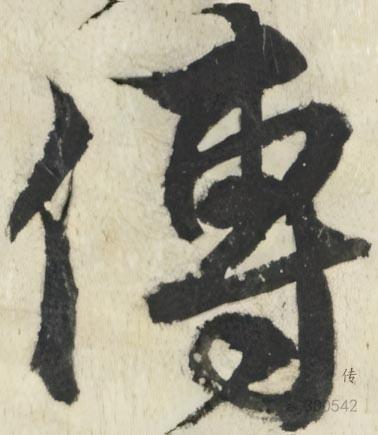 傳
传
300542